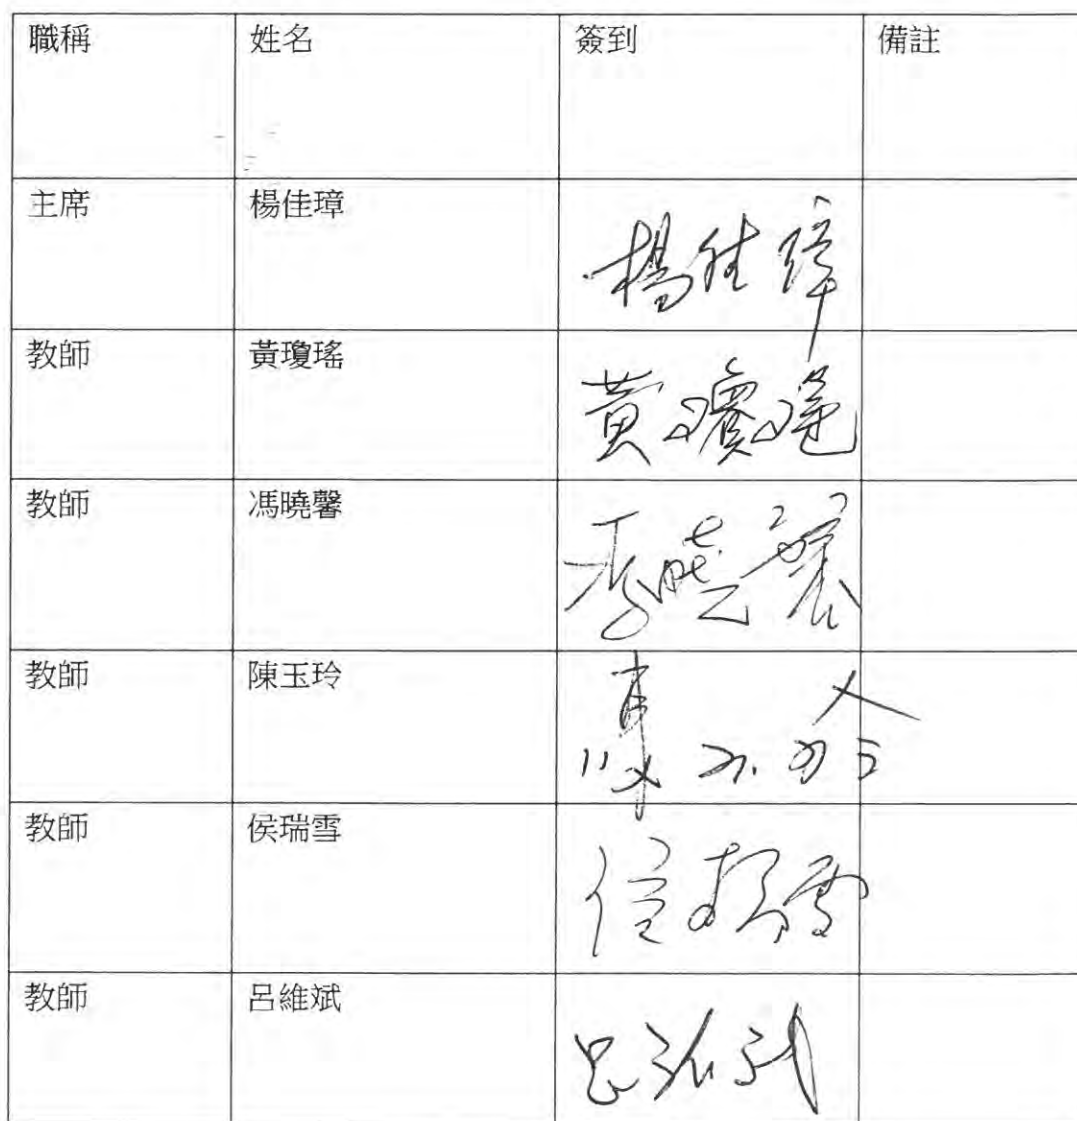 職稱 姓名 簽到 備註
主席 楊佳璋 楊佳璋
教師 黃瓊瑤 黃瓊瑤
教師 馮曉馨
教師 陳玉玲 陳玉玲
教師 侯瑞雪 侯瑞雪
教師 呂維斌